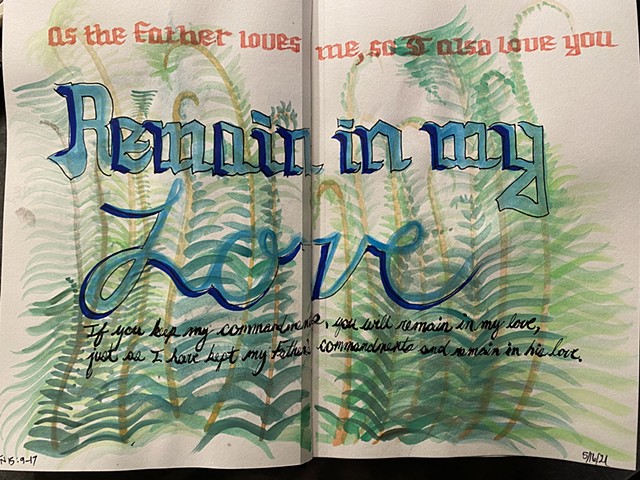 as the Father loves me, so I also love you
Remain in my
Love
If you keep my commandments, you will remain in my love,
just as I have kept my Father's commandments and remain in his love.
15:9-17
5/16/21